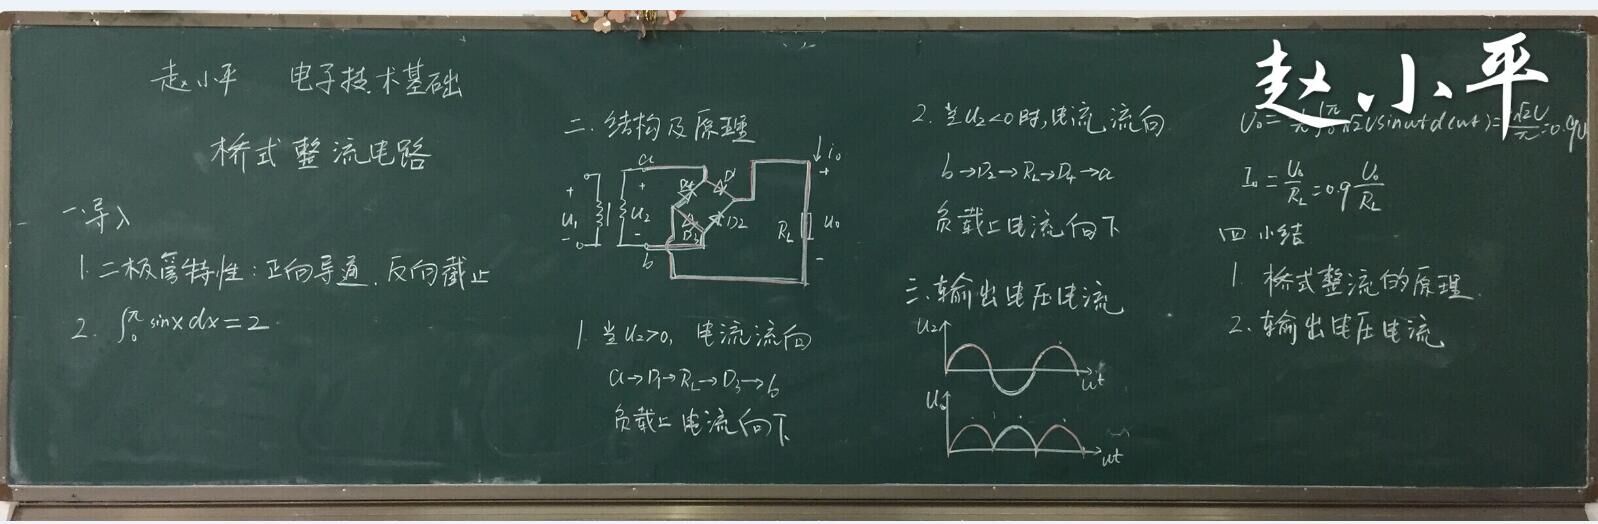 赵小平 电子技术基础
桥式整流电路
一.导入
1.二极管特性:正向导通.反向截止
2. ∫₀^π sinxdx=2
二.结构及原理
a
+
u₁
-
+
u₂
-
b
D₄
D₁
D₃
D2
i₀
+
R_L
u₀
-
1.当u₂>0, 电流流向
a→D₁→R_L→D₃→b
负载上电流向下
2.当u₂<0时,电流流向
b→D₂→R_L→D₄→a
负载上电流向下
三.输出电压电流
u₂
wt
u₀
wt
赵小平
U₀=1/π∫₀^π√2Usinwtd(wt)=2√2U/π=0.9U
I₀=U₀/R_L=0.9U₀/R_L
四 小结
1. 桥式整流的原理.
2.输出电压电流